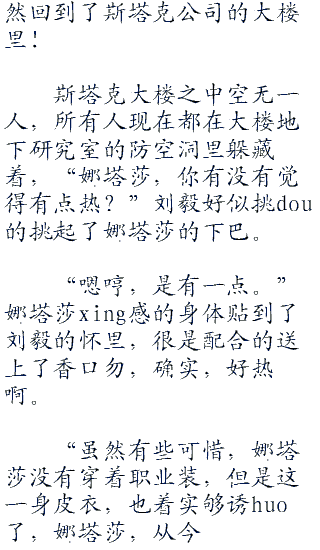 然回到了斯塔克公司的大楼
里！
斯塔克大楼之中空无一
人，所有人现在都在大楼地
下研究室的防空洞里躲藏
着，“娜塔莎，你有没有觉
得有点热？”刘毅好似挑dou
的挑起了娜塔莎的下巴。
“嗯哼，是有一点。”
娜塔莎xing感的身体贴到了
刘毅的怀里，很是配合的送
上了香口勿，确实，好热
啊。
“虽然有些可惜，娜塔
莎没有穿着职业装，但是这
一身皮衣，也着实够诱huo
了，娜塔莎，从今